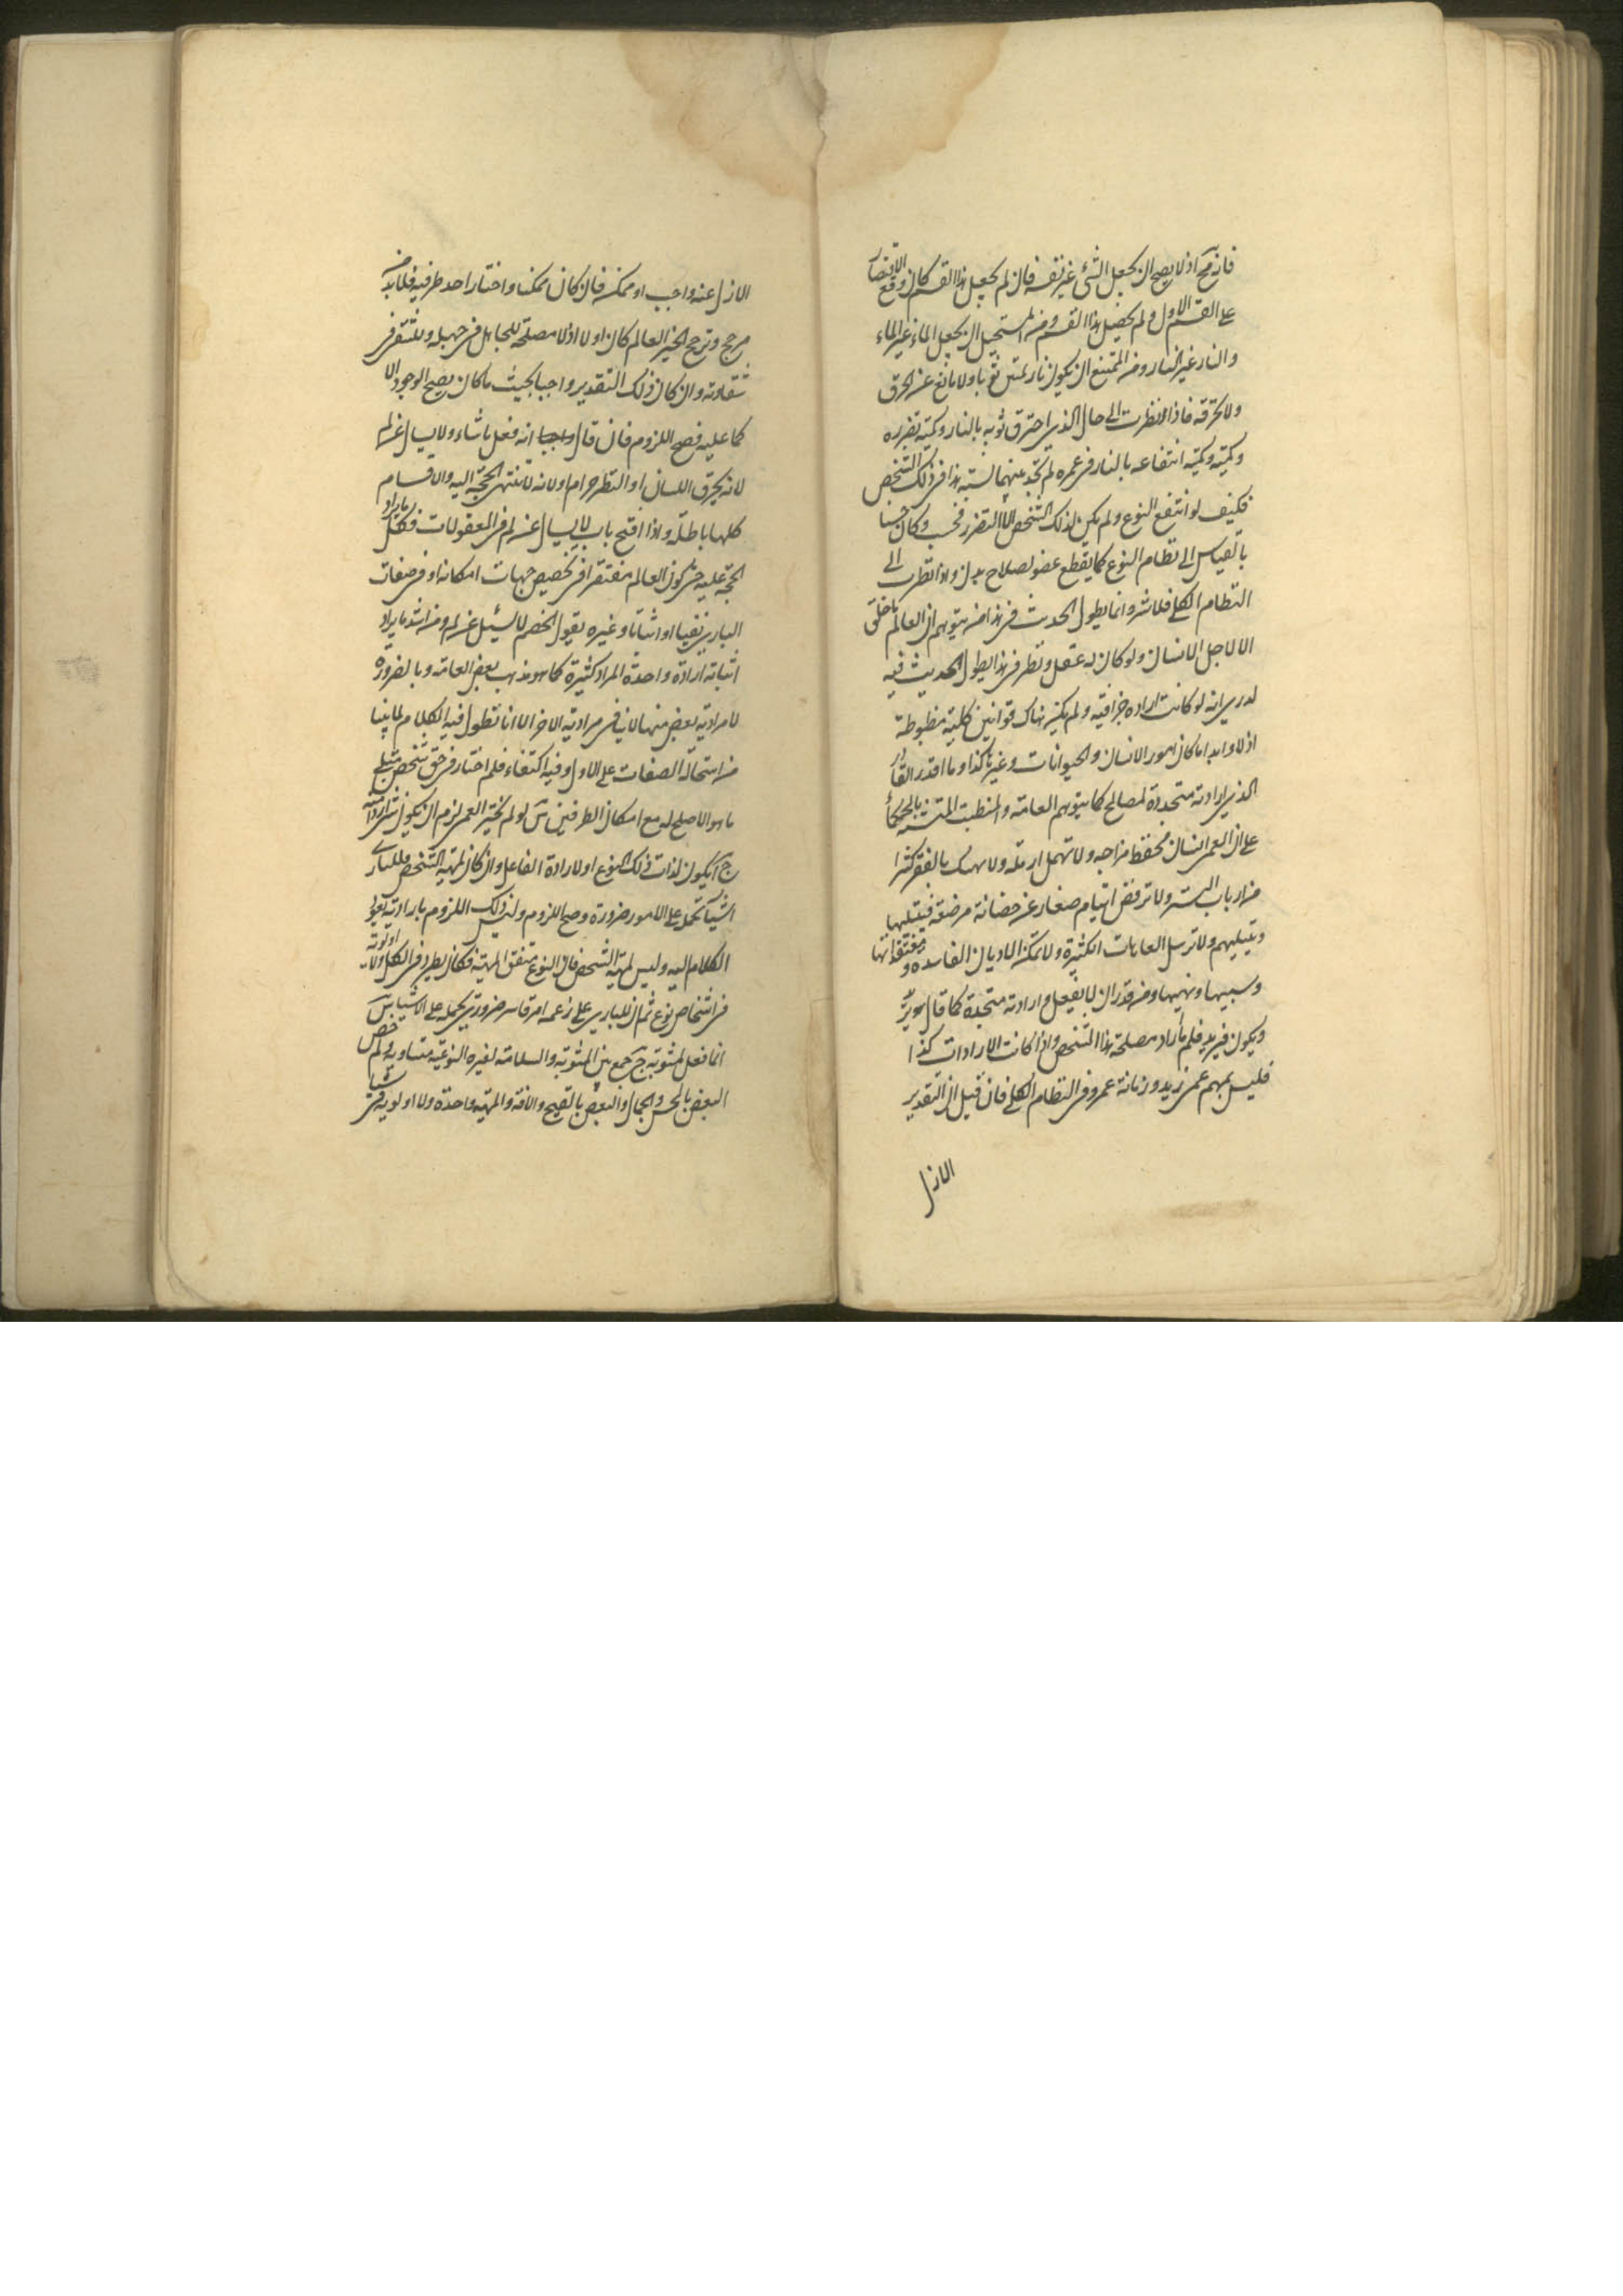 فانه مح اذ لا يصح ان يجعل الشئ غير نفسه فان لم يجعل هذا القسم كان وقع الاقتصار
على القسم الاول ولم يحصل هذا القسم ومن المستحيل ان يجعل الماء غير الماء
والنار غير النار ومن الممتنع ان يكون نار تمس ثوبا ولا مانع عن الحرق
ولا تحرقه فاذا نظرت الى حال الذي احترق ثوبه بالنار وكمية تضرره
وكميته وكمية انتفاعه بالنار في عمره لم تجد بينهما نسبة هذا في ذلك الشخص
فكيف لو انتفع النوع ولم يكن لذلك الشخص الا التضرر فحسب وكان حسنا
بالقياس الى نظام النوع كما يقطع عضو لصلاح بدن واذا نظرت الى
النظام الكلي فلا شر وانما يطول الحديث في هذا من يتوهم ان العالم ما خلق
الا لاجل الانسان ولو كان له عقل ونظر في هذا يطول الحديث فيه
لدرى انه لو كانت ارادة جزافية ولم يكن هناك قوانين كلية مضبوطة
اذلا وابدا ما كان امور الانسان والحيوانات وغيرها كذا وما اقدر القادر
الذي ارادته متجددة لمصالح كما يتوهم العامة والمتطبب المتشبه بالحكماء
على ان العمر انسان يحفظ مزاجه ولا تهمل ارملة ولا يهتك بالفقر كثيرا
من ارباب الستر ولا ترفض ايتام صغار عن حضانة مرضعة فيتيلها
ويتيلهم ولا ترسل العاهات الكثيرة ولا تمكن الاديان الفاسدة ومعتقداتها
وسبيها ونهبها ومن قدر ان لا يفعل وارادته متجددة كما قال هو يريد
ويكون فيريد فلم ما راد مصلحة هذا الشخص واذا كانت الارادات كذا
فليس بمهم عمى زيد وزمانة عمرو في النظام الكلي فان قيل ان التقدير
الازل
الازل عنه واجب او ممكن فان كان ممكنا واختار احد طرفيه فلا بد من
مرجح وترجح الخير العالم كان اولا اذ لا مصلحة للجاهل في جهله وللشقي في
شقاوته وان كان ذلك التقدير واجبا بحيث ما كان يصح الوجود الا
كما عليه فصح اللزوم فان قال واجبا انه فعل ما شاء ولا يسال عن لم
لانه يحرق اللسان او النظر حرام او لانه لا تنتهى الحجة اليه والاقسام
كلها باطلة واذا افتح باب لا يسال عن لم في المعقولات فكل ما يراد
الحجة عليه من كون العالم مفتقرا في تخصيص جهات امكانه او في صفات
الباري نفيا او اثباتا وغيره يقول الخصم لا يسئل عن لم ومن اشد ما يراد
اثباته ارادة واحدة المراد كثيرة كما هو مذهب بعض العامة وبالضرورة
لا مرادية بعض منها لا ينافي مرادية الاخر الا انا نطول فيه الكلام لما بينا
من استحالة الصفات على الاول وفيه اكتفاء فلم اختار في حق شخص مثلى
ما هو الاصلح له مع امكان الطرفين س لو لم يختر العمر لزم ان يكون شر ارادته
ج ا يكون لذات ذلك النوع او لارادة الفاعل وان كان لمهية الشخص فللباري
اشياء تحمله على الامور ضرورة وصح اللزوم وليس ذلك اللزوم بارادته يعود
الكلام اليه وليس لمهية الشخص فان النوع متفق المهية فكان يطرد في الكل ولا اولوية
في اشخاص نوع ثم ان للباري على زعمه امر قاسر ضروري يحمله على الاشياء س
انما فعل لمثوبة ج جمع بين المثوبة والسلامة لغيره النوعية متساوية ولم خص
البعض بالحسن والجمال والبعض بالقبح والآفة والمهية واحدة ولا اولوية في شيا